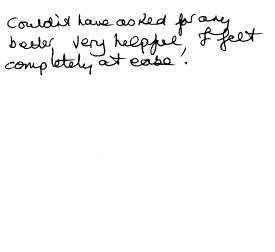 Couldn't have asked for any
better, very helpful, I felt
completely at ease.